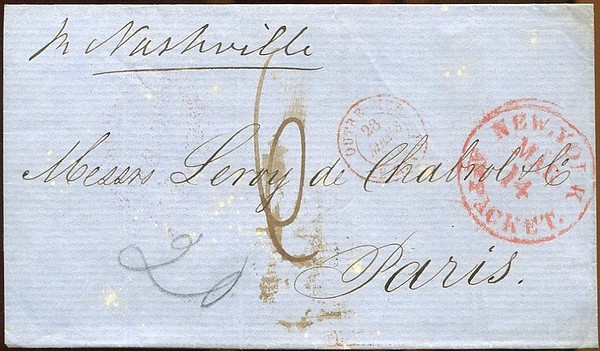 pr Nashville
Messrs Leroy de Chabrol & Co
Paris.
6
20
OUTRE-MER
28
NEW.YORK
MAR
14
PACKET.